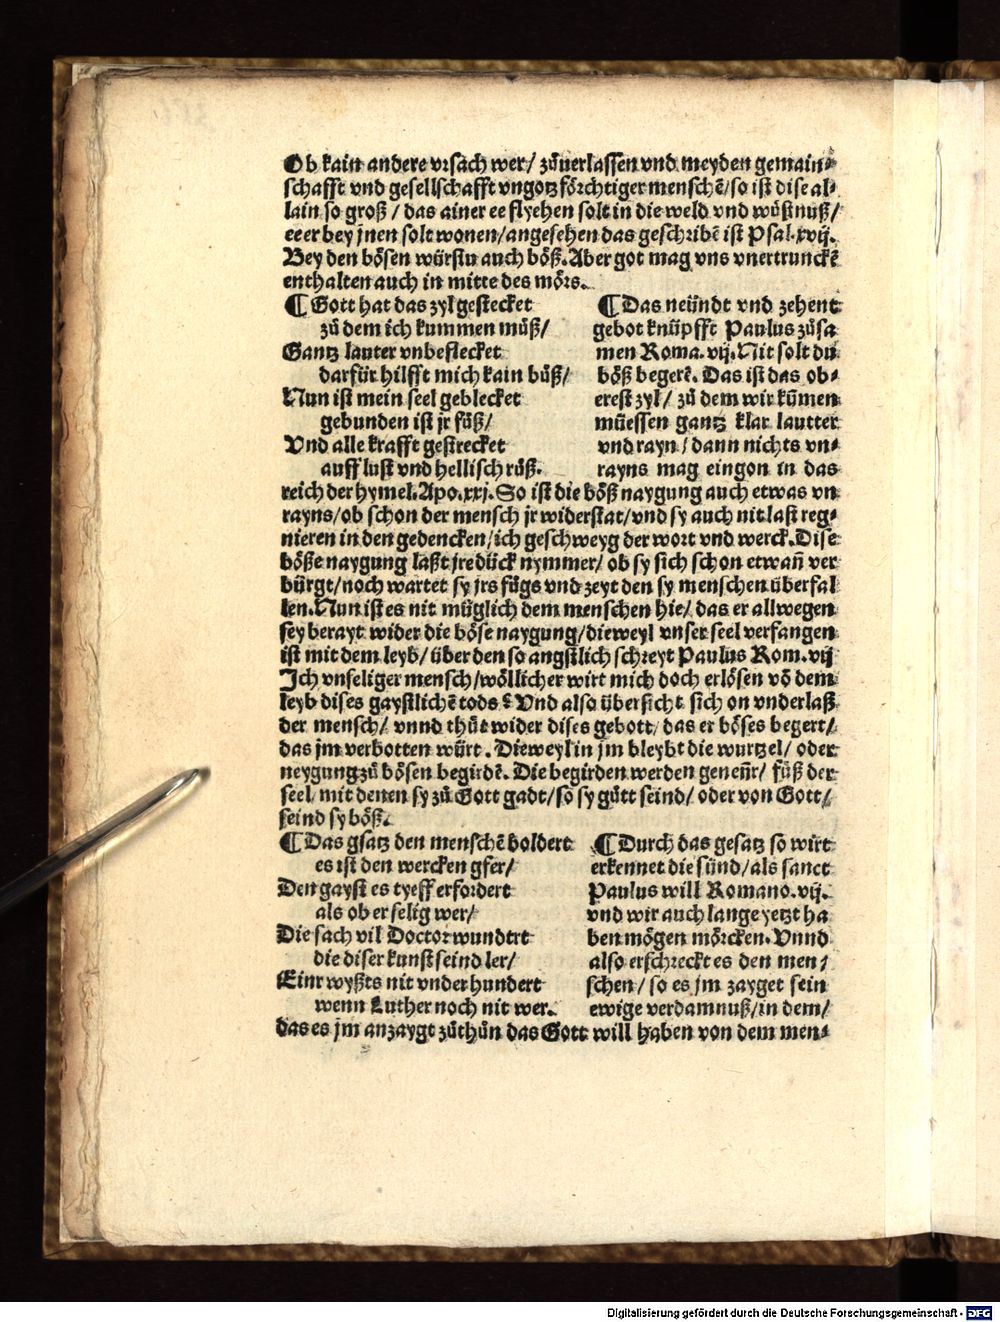 Ob kain andere vrsach wer/ zůuerlassen vnd meyden gemain-
schafft vnd gesellschafft vngotzförchtiger menschē/so ist dise al-
lain so groß/ das ainer ee flyehen solt in die weld vnd wüstnuß/
ee er bey jnen solt wonen/angesehen das geschribē ist Psal.xvij.
Bey den bösen würstu auch böß. Aber got mag vns vnertrunckē
enthalten auch in mitte des mörs.
¶ Gott hat das zyl gestecket
zů dem ich kummen můß/
Gantz lauter vnbeflecket
darfür hilfft mich kain bůß/
Nun ist mein seel geblecket
gebunden ist jr fůß/
Vnd alle krafft gestrecket
auff lust vnd hellisch růß.
¶ Das neündt vnd zehent
gebot knüpfft Paulus zůsa
men Roma.vij. Nit solt du
böß begerē. Das ist das ob-
erest zyl/ zů dem wir kūmen
müessen gantz klar lautter
vnd rayn/ dann nichts vn-
rayns mag eingon in das
reich der hymel. Apo.xxj. So ist die böß naygung auch etwas vn
rayns/ob schon der mensch jr widerstat/vnd sy auch nit last reg-
nieren in den gedencken/ich geschweyg der wort vnd werck. Dise
böße naygung laßt jre dück nymmer/ ob sy sich schon etwañ ver
bürgt/noch wartet sy jrs fůgs vnd zeyt den sy menschen überfal
len. Nun ist es nit müglich dem menschen hie/ das er allwegen
sey berayt wider die böse naygung/dieweyl vnser seel verfangen
ist mit dem leyb/ über den so angstlich schreyt Paulus Rom.vij
Ich vnseliger mensch/wöllicher wirt mich doch erlösen vō dem
leyb dises gaystlichē tods? Vnd also übersicht sich on vnderlaß
der mensch/ vnnd thůt wider dises gebott/ das er böses begert/
das jm verbotten würt. Dieweyl in jm bleybt die wurtzel/ oder
neygung zů bösen begirdē. Die begirden werden geneñt/ fůß der
seel/ mit denen sy zů Gott gadt/so sy gůtt seind/ oder von Gott/
seind sy böß.
¶ Das gsatz den menschē boldert
es ist den wercken gfer/
Den gayst es tyeff erfordert
als ob er selig wer/
Die sach vil Doctor wundert
die diser kunst seind ler/
Einr wyßts nit vnder hundert
wenn Luther noch nit wer.
¶ Durch das gesatz so wirt
erkennet die sünd/als sanct
Paulus will Romano.vij.
vnd wir auch lange yetzt ha
ben mögen mörcken. Vnnd
also erschreckt es den men-
schen/ so es jm zayget sein
ewige verdamnuß/in dem/
das es jm anzaygt zůthůn das Gott will haben von dem men-
Digitalisierung gefördert durch die Deutsche Forschungsgemeinschaft - DFG